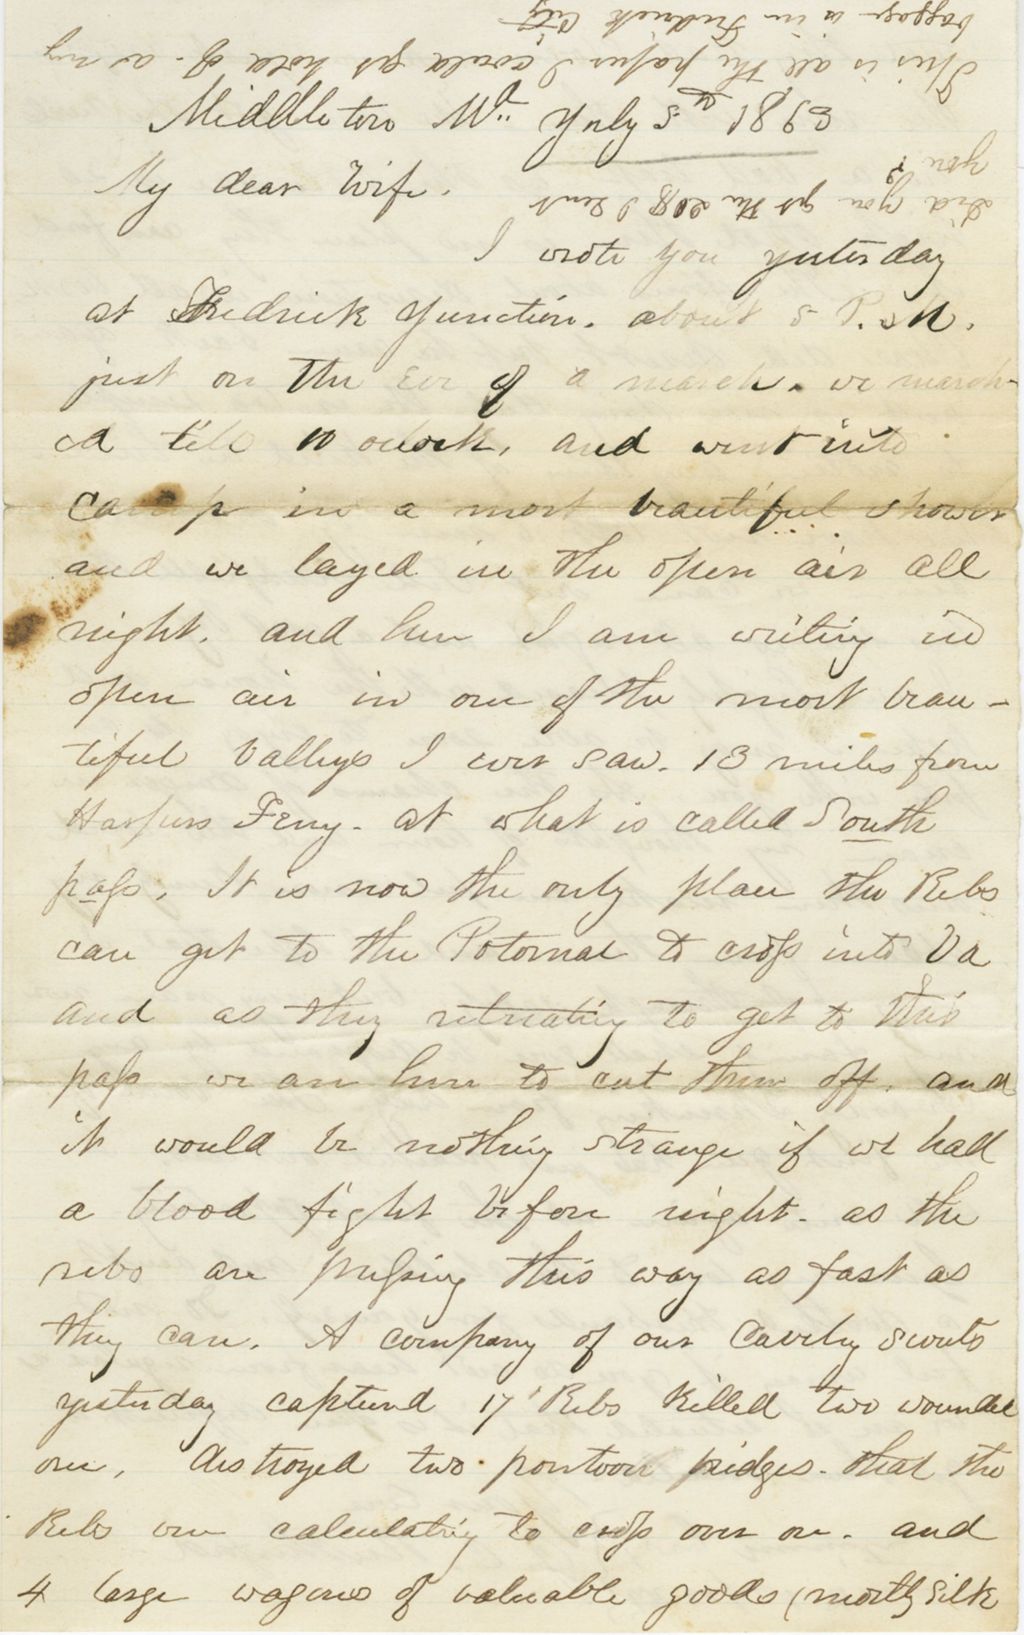 This is all the paper I could get hold of. as my
baggage is in Fredrick City
Middletown Md. July 5th 1863
My dear Wife.
Did you get the 20$ I sent
you?
I wrote you yesterday
at Fredrick Junction. about 5 P.M.
just on the Eve of a march. we march-
ed till 10 oclock, and went into
camp in a most beautiful shower
and we layed in the open air all
night. and here I am writing in
open air in one of the most beau-
tiful Valleys I ever saw. 13 miles from
Harpers Ferry. at what is called South
pass. It is now the only place the Rebs
can get to the Potomac to cross into Va
and as they retreating to get to this
pass we are here to cut them off. and
it would be nothing strange if we had
a blood fight before night. as the
rebs are pressing this way as fast as
they can. A company of our Cavelry scouts
yesterday captured 17 Rebs Killed two wounded
one, destroyed two pontoon bridges. that the
Rebs were calculating to cross over on. and
4 large wagons of valuable goods (mostly silk